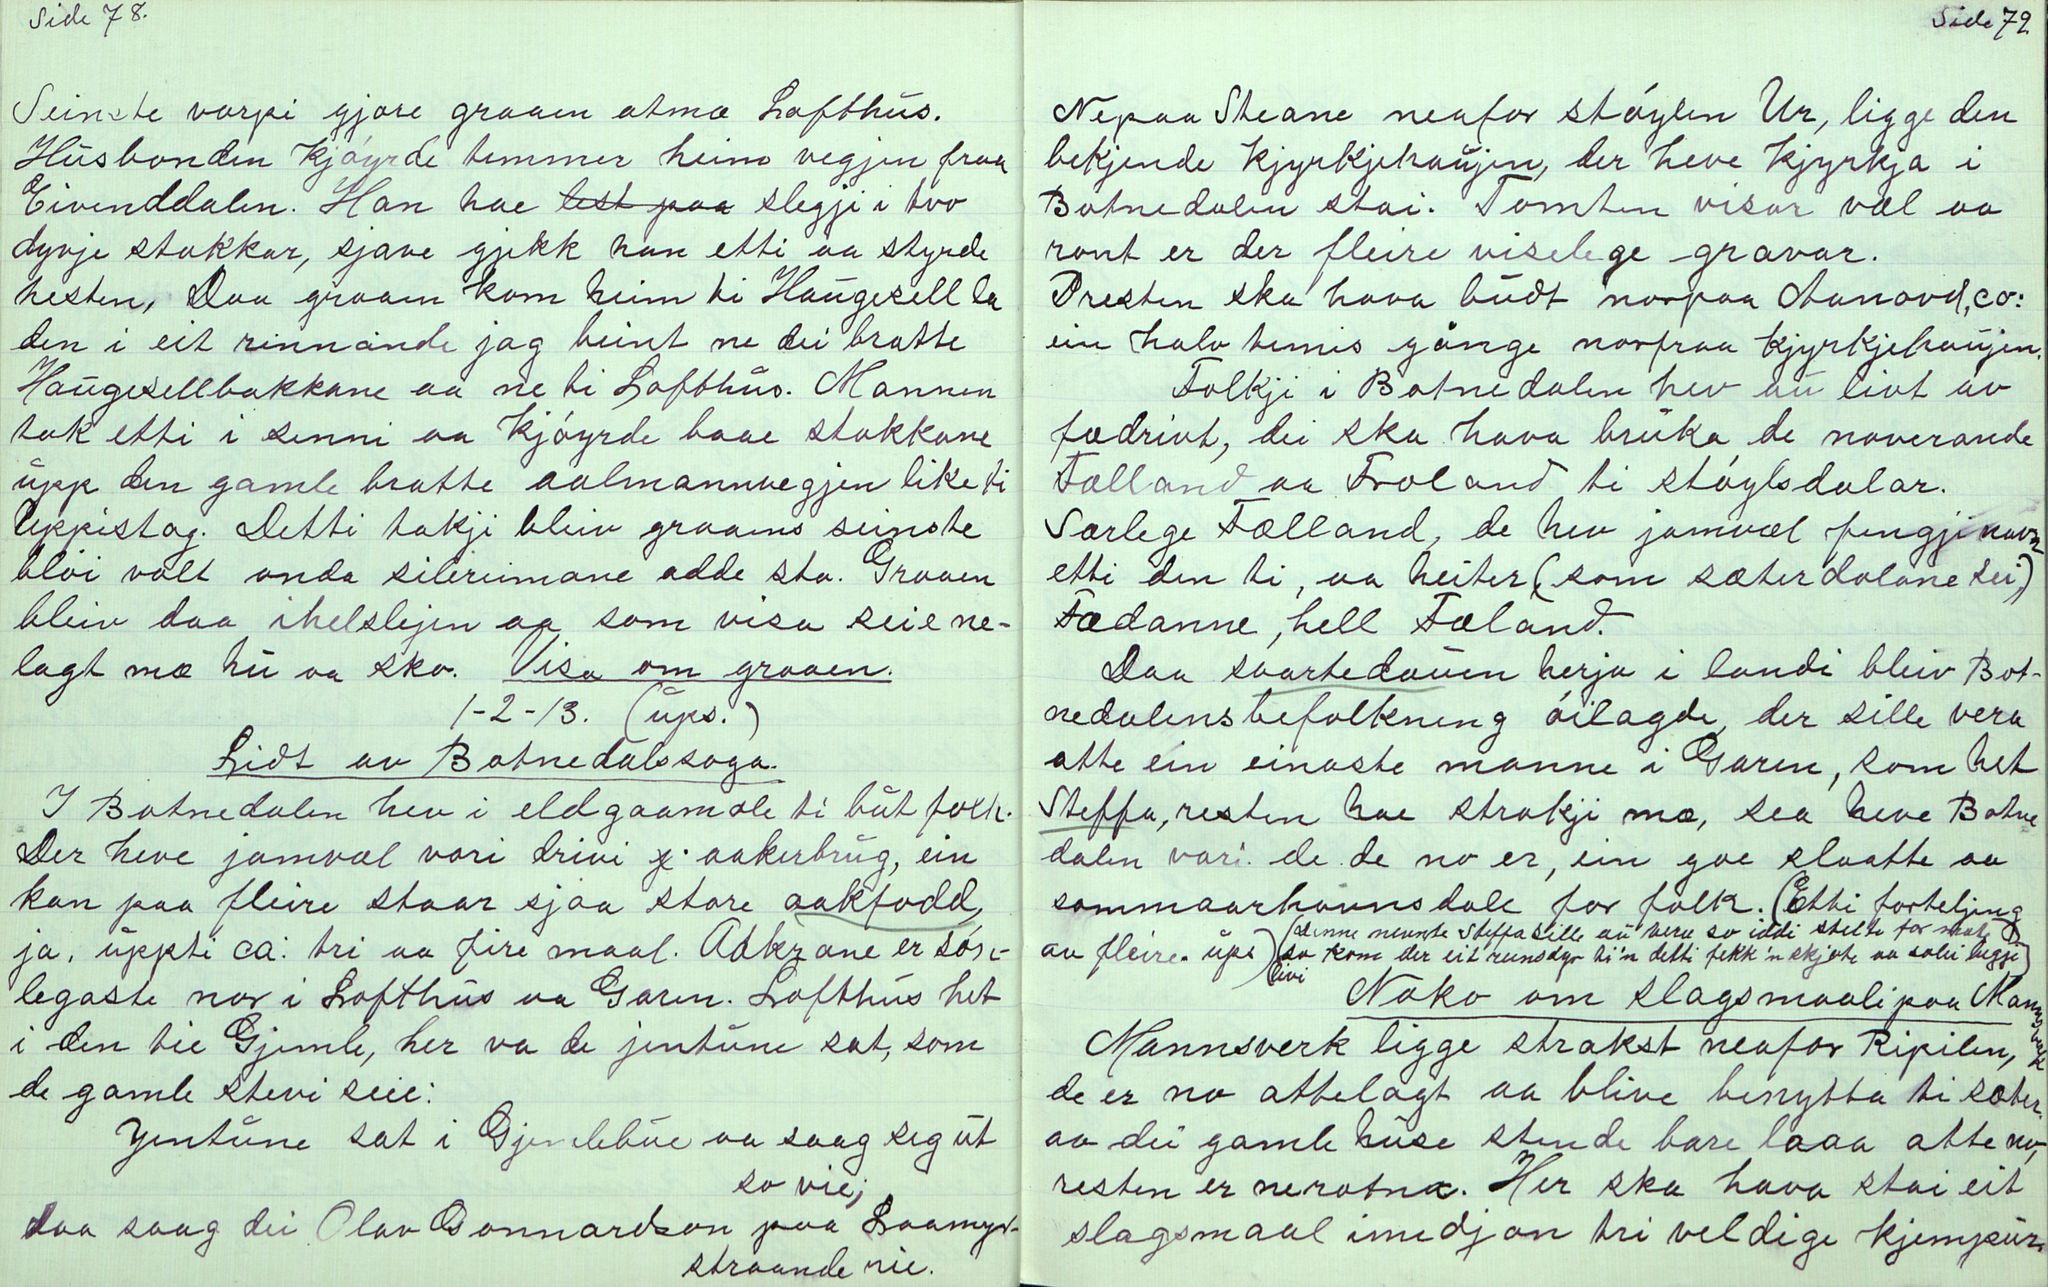 Side 78.
Seinste varpi gjore graaen atmæ Lofthus.
Husbonden kjøyrde temmer heim vegjen fraa
Eivenddalen. Han hae lest paa slegji i tvo
dyvje stokkar, sjave gjekk han etti aa styrde
hesten, Daa graaen kom heim ti Haugesell la
den i eit rinnande jag beint ne dei bratte
Haugesellbakkane aa ne ti Lofthus. Mannen
tok etti i senni aa kjøyrde baae stokkane
upp den gamle bratte aalmannvegjen like ti
Uppistog. Detti takji bleiv graaens seinste
bløi valt unda sileriimane adde sta. Graaen
bleiv daa ihelslejen aa som visa seie ne-
lagt mæ hu aa sko. Visa om graaen.
1-2-13. (ups.)
Lidt av Botnedalssoga.
I Botnedalen hev i eldgaamole ti but folk.
Der heve jamvæl vori drivi aakerbrug, ein
kan paa fleire staar sjaa store aakfodd,
ja, uppti ca: tri aa fire maal. Aakrane er sør-
legaste nor i Lofthus aa Garen. Lofthus het
i den tie Gjemle, her va de jentune sat, som
de gamle stevi seie:
Jentune sat i Gjemlebue aa saag seg ut
so vie;
daa saag dei Olav Gonnardson paa Laamyr-
straande rie.
Side 79
Nepaa Steane neafor støylen Ur, ligge den
bekjende kjyrkjehaujen, der heve kjyrkja i
Botnedalen stai. Tomten visar væl aa
ront er der fleire viselege gravar.
Presten ska hava budt norpaa co:
ein halv temis gånge norfraa kjyrkjehaujen.
Folkji i Botnedalen hev au livt av
fædrivt, dei ska hava bruka de noverande
Fælland aa Froland ti støylsdalar.
Særlege Fælland, de hev jamvæl fengji navn
etti den ti, aa heiter (som sæterdølane sei)
Fædanne, hell Fæland.
Daa svartedauen herja i landi bleiv Bot-
nedalensbefolkning øilagde, der sille vera
atte ein einaste manne i Garen, som het
Steffa, resten hae strakji mæ, sea heve Botne
dalen vari de de no er, ein goe slaatte aa
sommaarhavnsdale for folk. (Etti forteljing
av fleire. ups) (denne nevnte Steffa sille au vera so iddi stelte for mate
so kom der eit reinsdyr ti'n detti fekk 'n skjote aa solei beggji
livi)
Noko om slagsmaali paa Mannsverk
Mannsverk ligge strakst neafor Ripilen,
de er no attelagt aa blive benytta ti sæter.
av dei gamle huse stende bare laaa atte no,
resten er nerotna. Her ska hava stai eit
slagsmaal imedjon tri veldige kjempur.